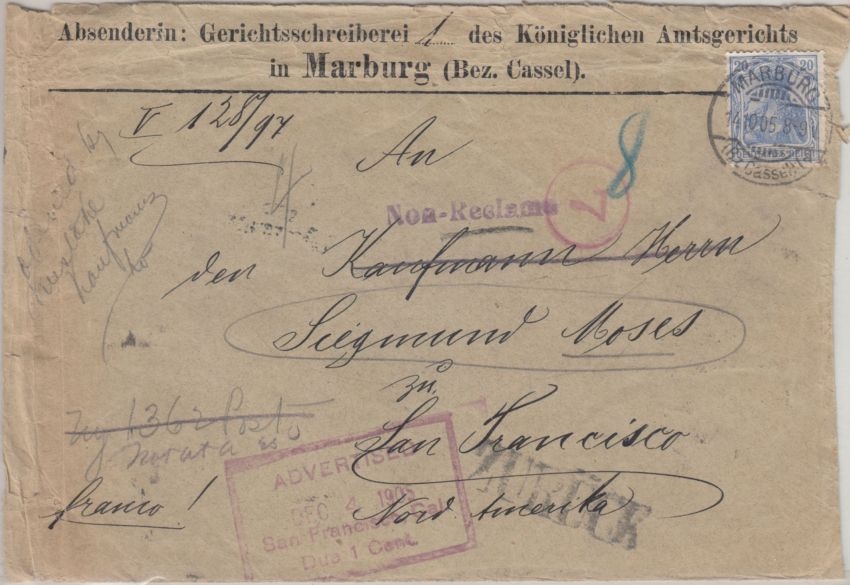 Absenderin: Gerichtsschreiberei 1 des Königlichen Amtsgerichts
in Marburg (Bez. Cassel).
20 20
MARBURG
14.10.05 8-9
V 128/97
An
8
Non-Reclamé
7
den Kaufmann Herrn
Siegmund Moses
zu
San Francisco
Nord Amerika
1362 Post
franco!
ADVERTISED
DEC 4 1905
San Francisco, Cal.
Due 1 Cent.
ZURÜCK